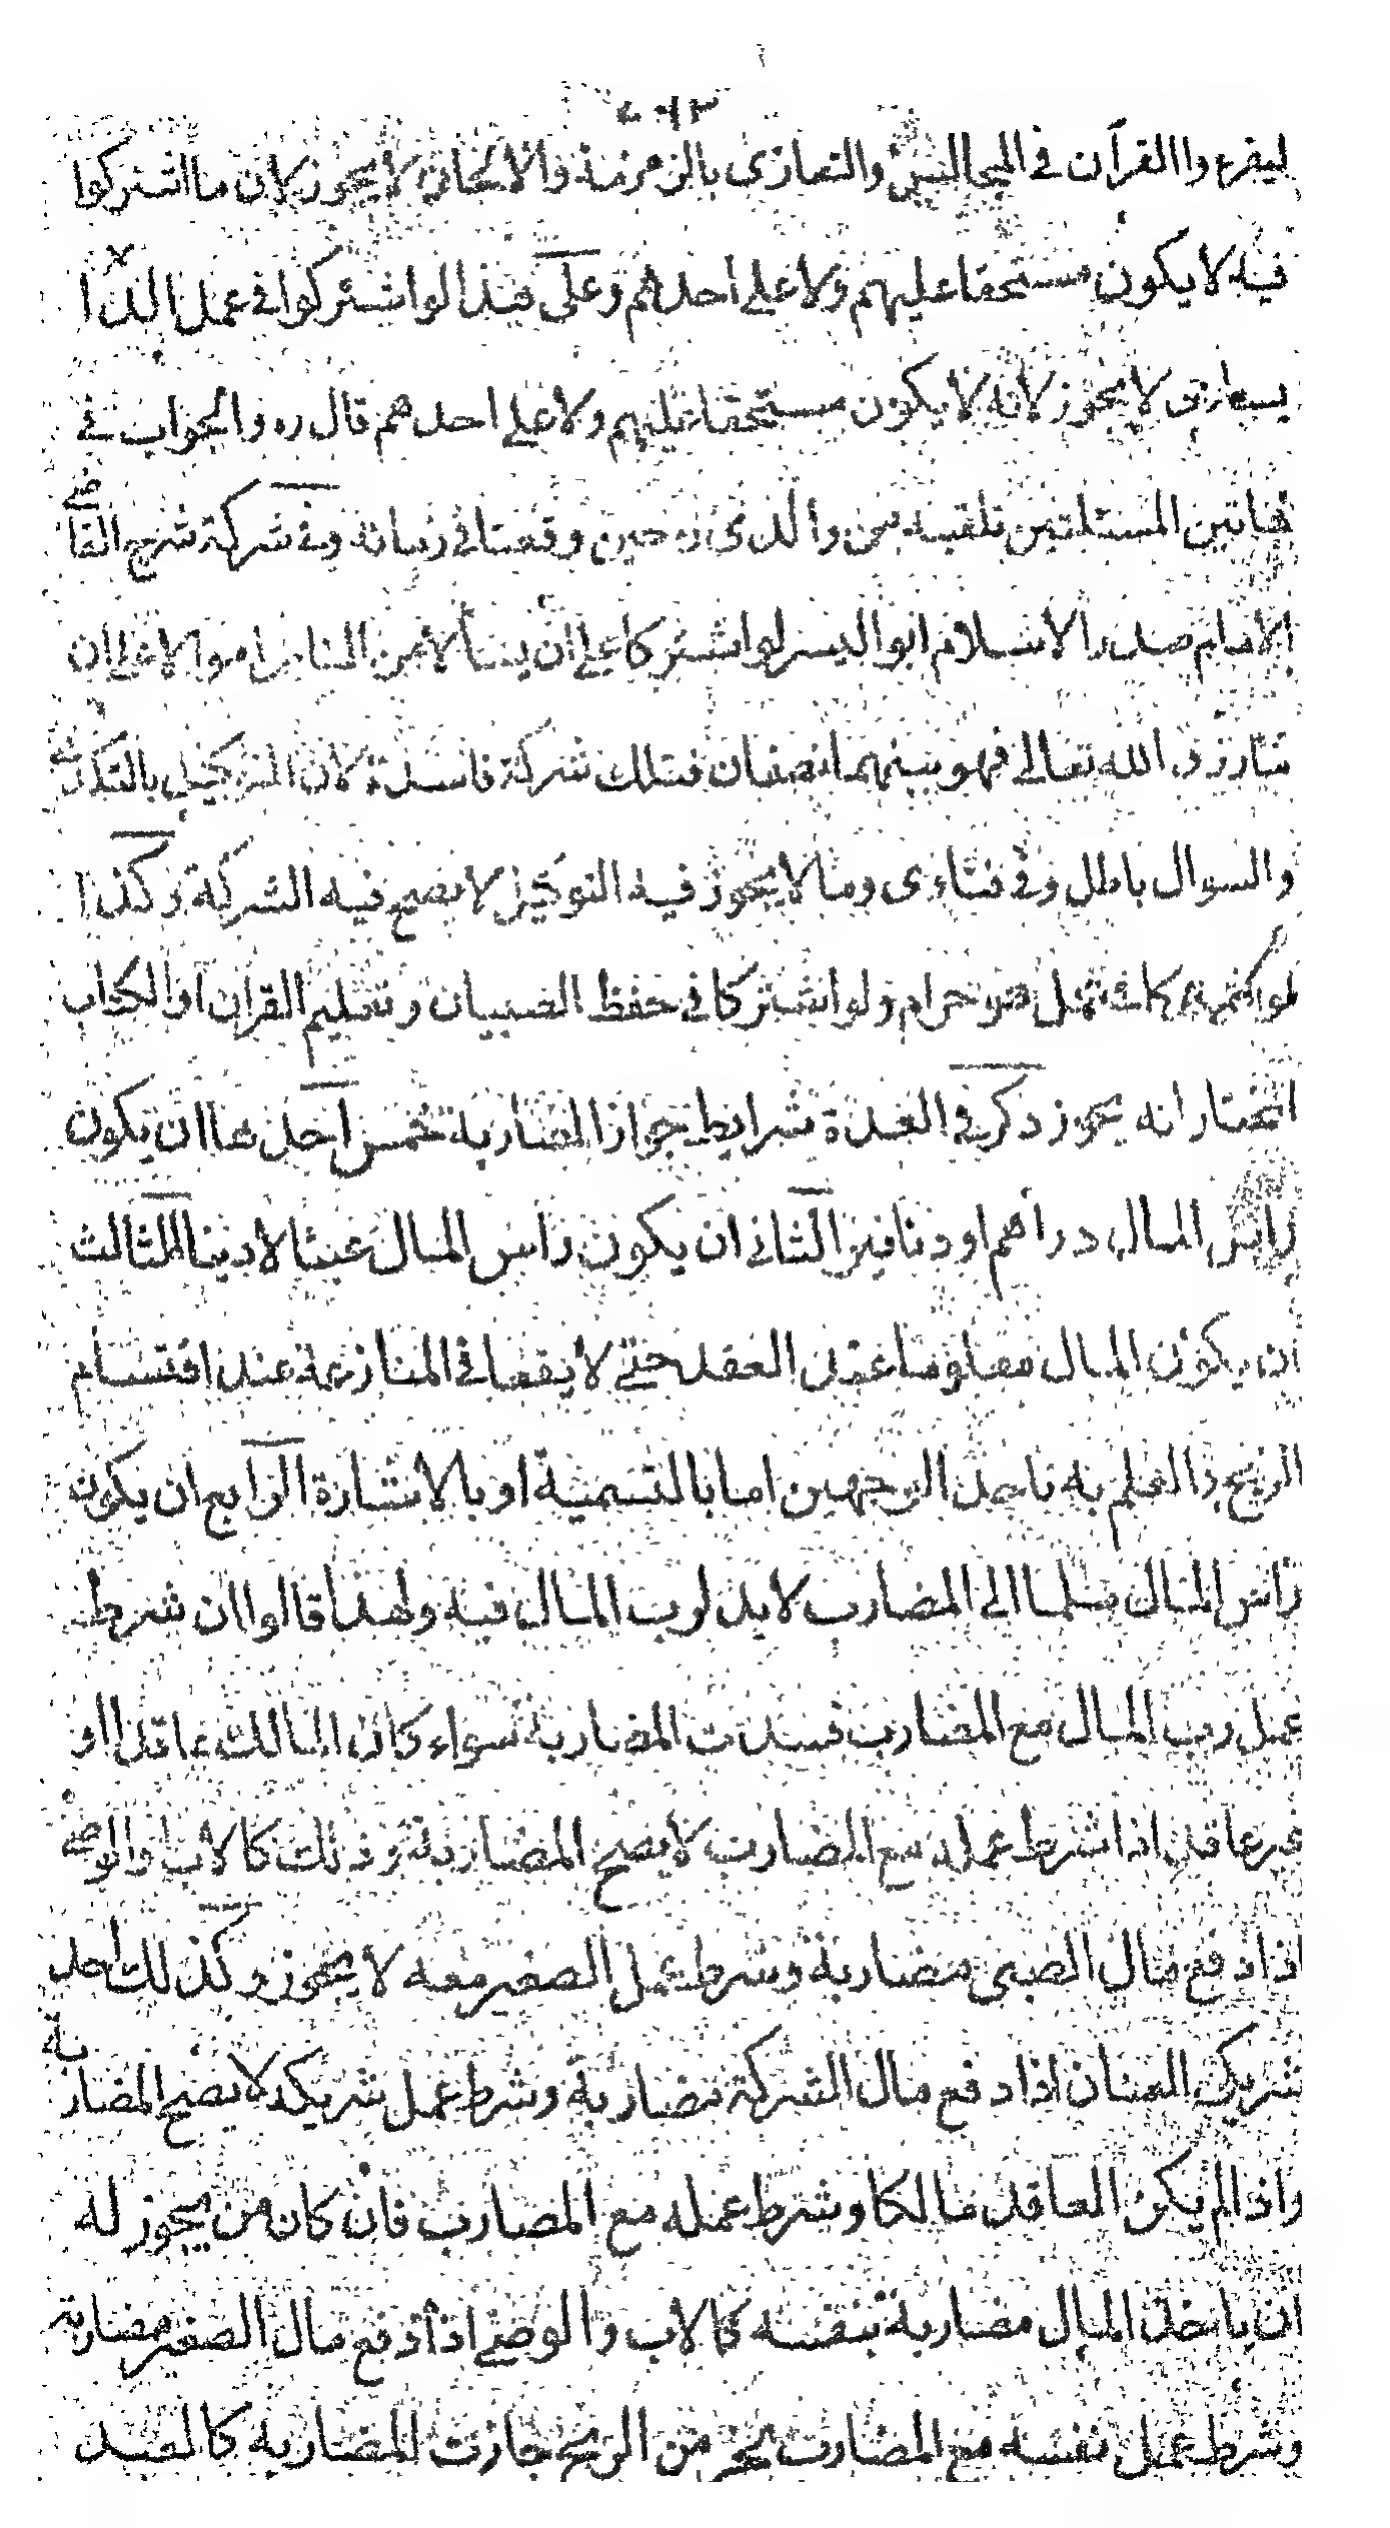 ليقرءوا القرآن في المجالس والتعازى بالزمزمة والالحان لا يجوز لان ما اشتركوا
فيه لا يكون مستحقا عليهم ولا على احدهم وعلى هذا لو اشتركوا في عمل الذ ا
لا يجوز لانه لا يكون مستحقا عليهم ولا على احدهم قال ره والجواب في
هاتين المسئلتين تلقيته من والدى ره حين وقعتا في زمانه وفي شركة شرح القاضي
الامام صدر الاسلام ابو اليسر لو اشتركا على ان يسألا من الناس اموالا على ان
ما رزق الله تعالى فهو بينهما نصفان فتلك شركة فاسدة لان التوكيل بالتكدي
والسوال باطل وفي فتاوى وما لا يجوز فيه التوكيل لا يصح فيه الشركة وكذا
في عمل هو حرام ولو اشتركا في حفظ الصبيان وتعليم القران او الكتاب
المختار انه يجوز ذكر في العدة شرايط جواز المضاربة خمس احدها ان يكون
راس المال دراهم او دنانير الثاني ان يكون راس المال عينا لا دينا الثالث
ان يكون المال معلوما عند العقد حتى لا يقعا في المنازعة عند اقتسام
الربح والعلم به باحد الوجهين اما بالتسمية او بالاشارة الرابع ان يكون
راس المال مسلما الى المضارب لا يد لرب المال فيه ولهذا قالوا ان شرط
عمل رب المال مع المضارب فسدت المضاربة سواء كان المالك عاقدا او
غير عاقد اذا شرط عمله مع المضارب لا يصح المضاربة وذلك كالاب والوصي
اذا دفع مال الصبى مضاربة وشرط عمل الصغير معه لا يجوز وكذلك احد
شريك العنان اذا دفع مال الشركة مضاربة وشرط عمل شريكه لا يصح المضاربة
واذا لم يكن العاقد مالكا وشرط عمله مع المضارب فان كان من يجوز له
ان ياخذ المال مضاربة بنفسه كالاب والوصي اذا دفع مال الصغير مضاربة
وشرط عمل نفسه مع المضارب بجزء من الربح جازت المضاربة كالعبد